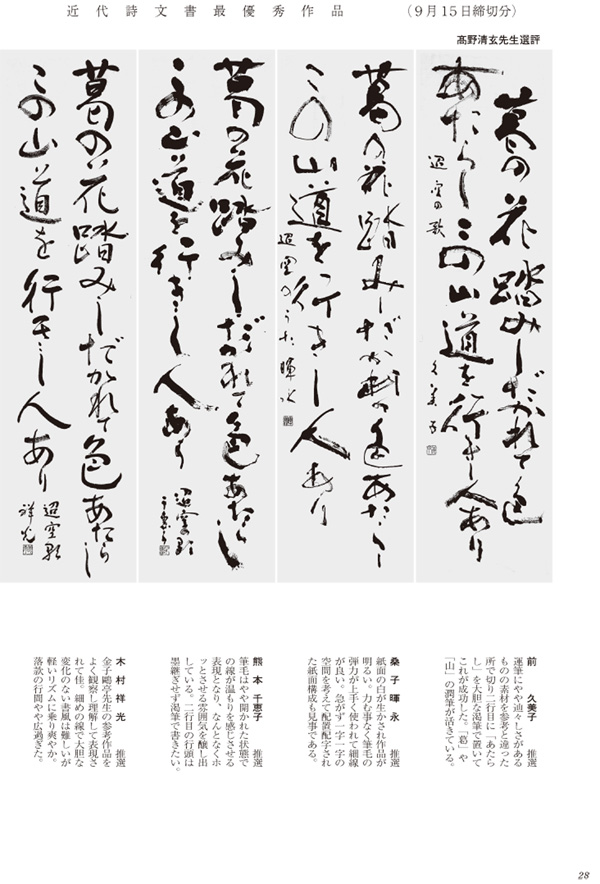 近代詩文書最優秀作品 （9月15日締切分）
髙野清玄先生選評
葛の花踏みしだかれて色
あたらしこの山道を行きし人あり
迢空の歌 久美子
葛の花踏みしだか連て色あたらし
この山道を行きし人あり
迢空のうた 暉永
葛の花踏みしだかれて色あたらし
この山道を行きし人あり
迢空歌 千恵子
葛の花踏みしだかれて色あたらし
この山道を行きし人あり
迢空歌
祥光
前 久美子 推選
運筆にやや辿々しさがある
ものの素材を参考と違った
所で切り二行目に「あたら
し」を大胆な渇筆で置いて
これが成功した。「葛」や
「山」の潤筆が活きている。
桑子暉永 推選
紙面の白が生かされ作品が
明るい。力む事なく筆毛の
弾力が上手く使われて細線
が良い。急がず一字一字の
空間を考えて配置配字され
た紙面構成も見事である。
熊本千恵子 推選
筆毛はやや開かれた状態で
の線が温もりを感じさせる
表現となり、なんとなくホ
ッとさせる雰囲気を醸し出
している。二行目の行頭は
墨継ぎせず渇筆で書きたい。
木村祥光 推選
金子鷗亭先生の参考作品を
よく観察し理解して表現さ
れて佳。細めの線で大胆な
変化のない書風は難しいが
軽いリズムに乗り爽やか。
落款の行間やや広過ぎた。
28